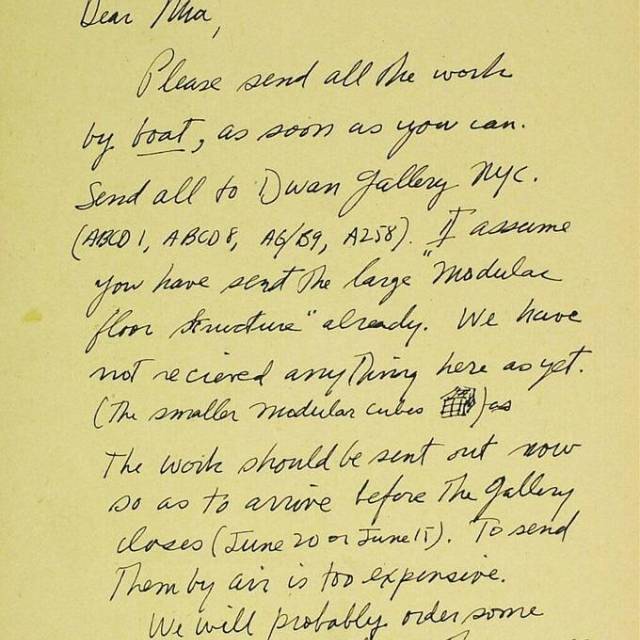 Dear Mia,
Please send all the work
by boat, as soon as you can.
Send all to Dwan Gallery NYC.
(ABCD 1, ABCD 8, A6/B9, A258). I assume
you have sent the large "Modular
floor structure" already. We have
not recieved anything here as yet.
(The smaller modular cubes ) as
The work should be sent out now
so as to arrive before the Gallery
closes (June 20 or June 15). To send
Them by air is too expensive.
We will probably order some